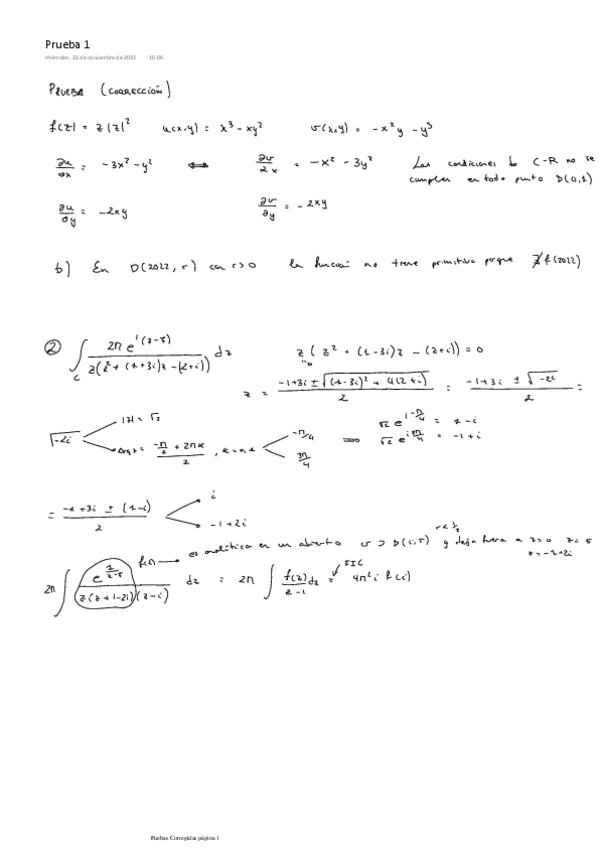 Prueba 1
miércoles, 16 de noviembre de 2022 16:06
PRUEBA (CORRECCIÓN)
f(z) = z|z|² u(x,y) = x³ - xy² v(x,y) = -x²y - y³
∂u/∂x = -3x² - y² ⟺ ∂v/∂x = -x² - 3y² Las condiciones de C-R no se
cumplen en todo punto D(0,1)
∂u/∂y = -2xy ∂v/∂y = -2xy
b) En D(2022, r) con r>0 la función no tiene primitiva porque ∄ f(2022)
② ∫c 2π e / z(z² + (1+3i)z - (2+i)) dz z(z² + (1-3i)z - (2+i)) = 0
z = -1+3i ± √((1-3i)² + 4(2+i)) / 2 = -1+3i ± √-2i / 2 =
√-2i |z| = √2
Arg z = (-π/2 + 2πk)/2, k=0,1 -π/4 ⟹ √2 e^(i -π/4) = 1-i
3π/4 √2 e^(i 3π/4) = -1+i
= -1+3i ± (1-i) / 2 i
-1+2i
f(z) → es analítica en un abierto U ⊃ D(i,r) r<1/2 y deja fuera a z=0 z=5
z=-1+2i
2π ∫ e^(z/z-5) / z(z+1-2i)(z-i) dz = 2π ∫ f(z)/z-1 dz = FIC 4π² i f(i)
Puebas Corregidas página 1